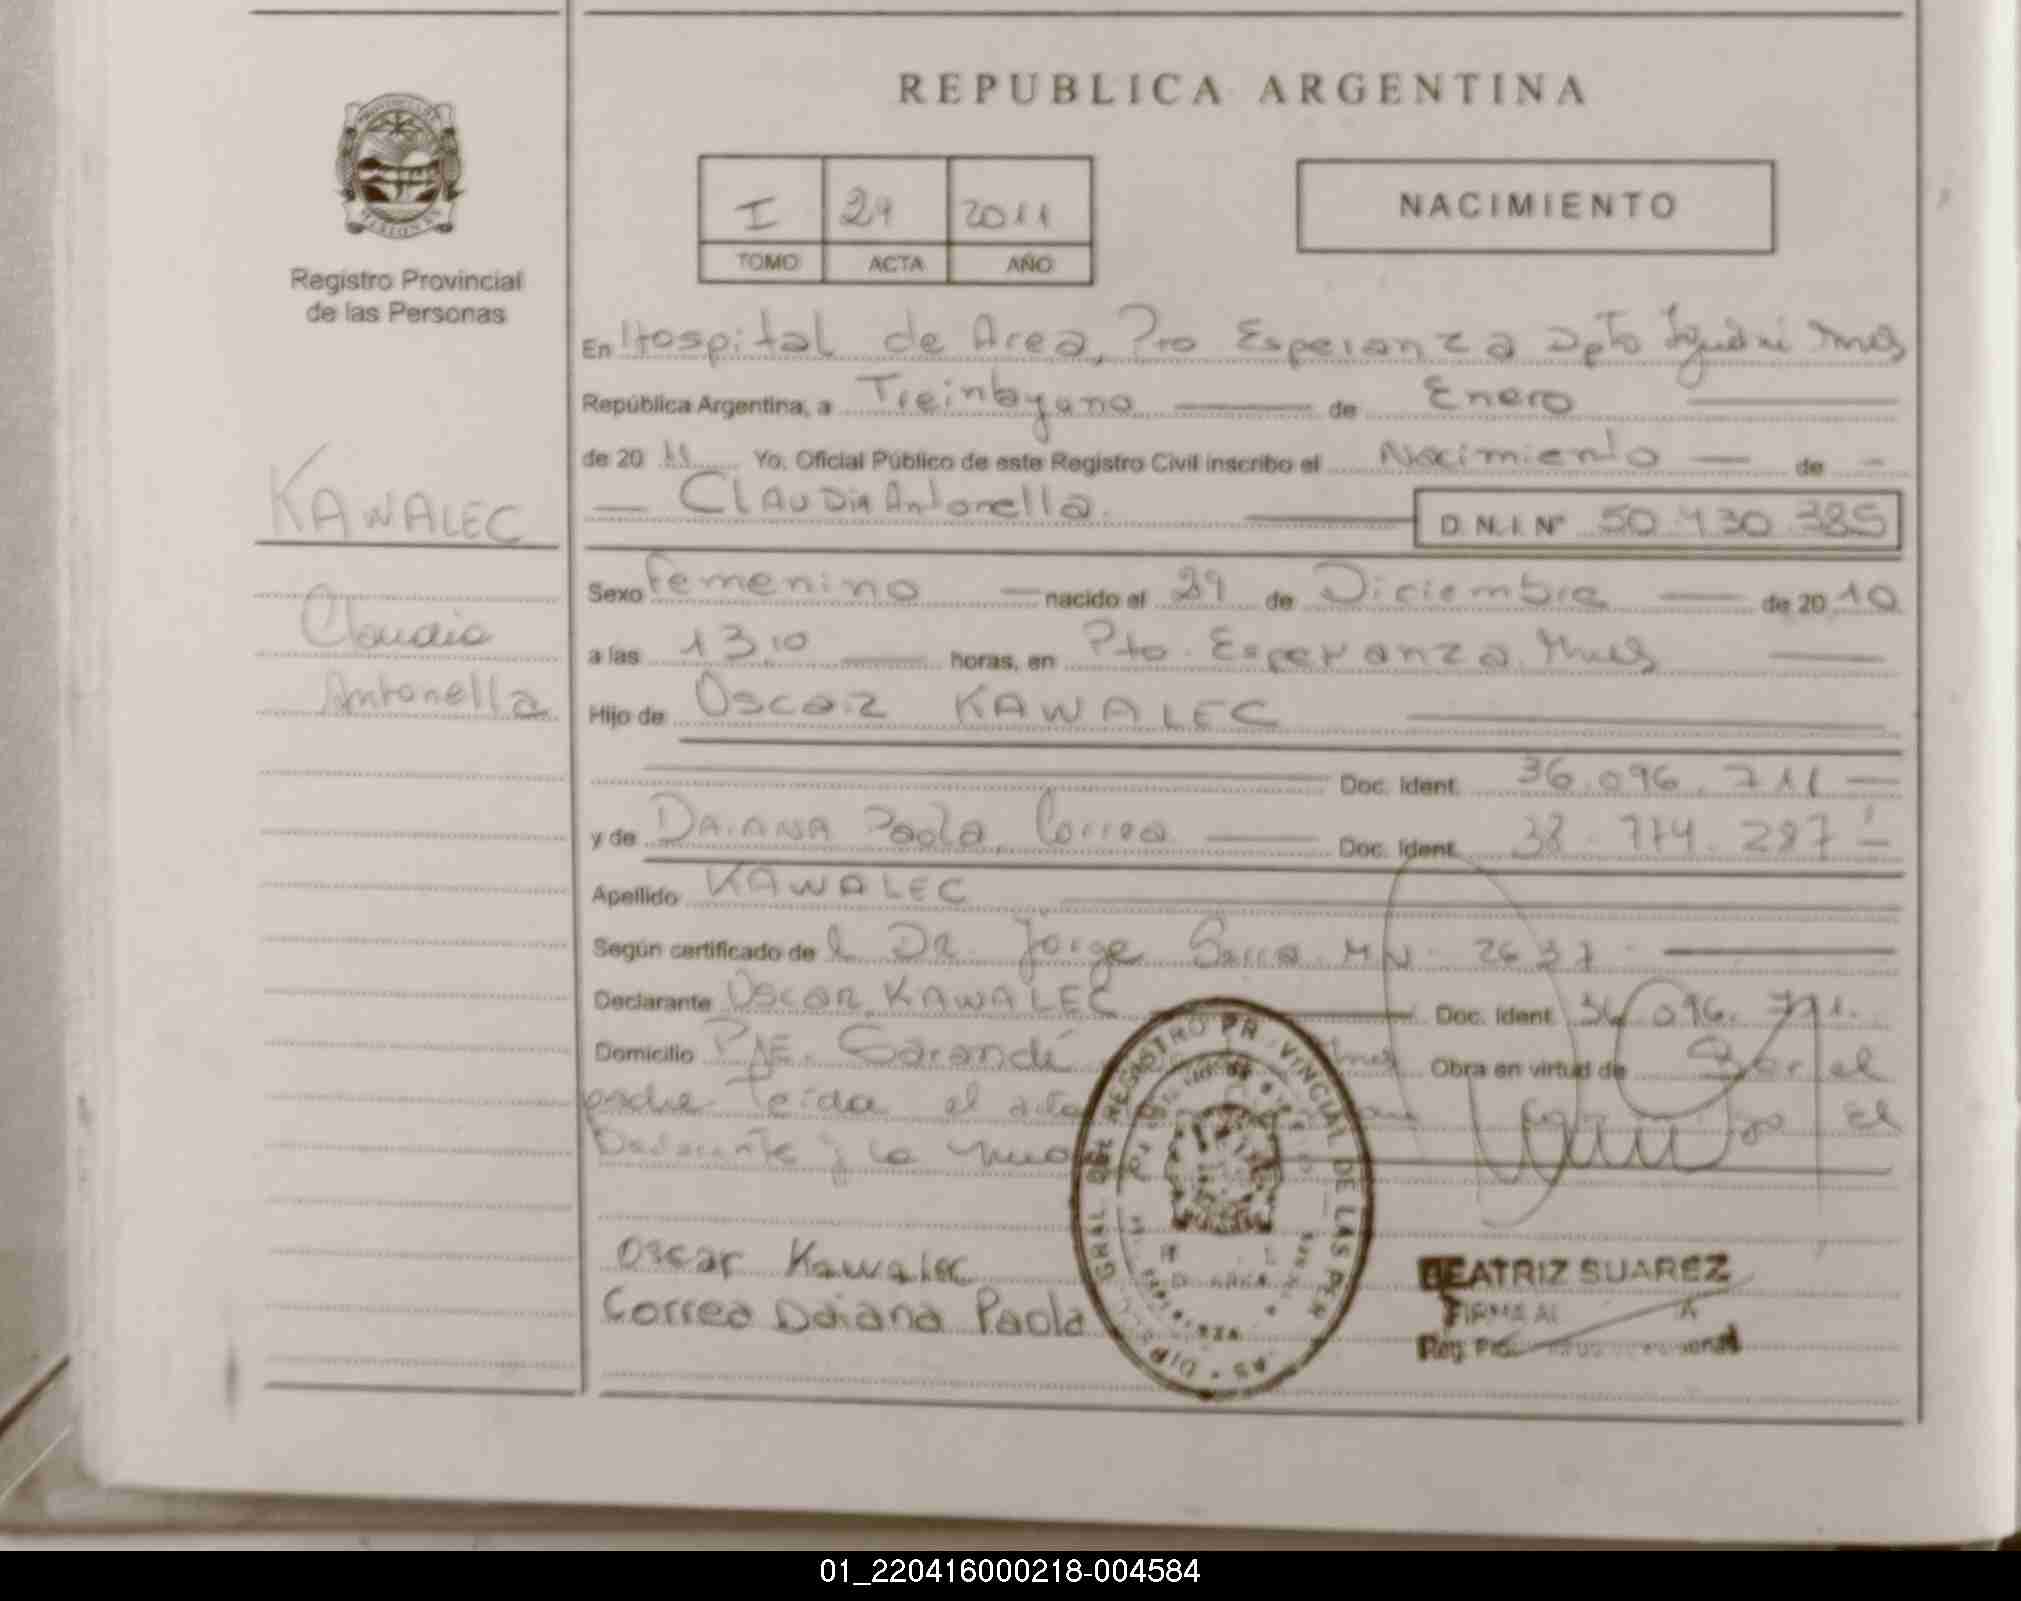 REPUBLICA ARGENTINA
I 29 2011
TOMO ACTA AÑO
NACIMIENTO
Registro Provincial
de las Personas
En Hospital de Area, Pto Esperanza Dpto Iguazú Mnes
República Argentina, a Treintayuno de Enero
de 20 11 Yo, Oficial Público de este Registro Civil inscribo el Nacimiento de
Claudia Antonella. D.N.I. Nº 50.430.385
KAWALEC
Claudia
Antonella
Sexo Femenino nacido el 29 de Diciembre de 20 10
a las 13,10 horas, en Pto. Esperanza. Mnes
Hijo de Oscar KAWALEC
Doc. Ident. 36.096.711
y de DAIANA Paola Correa Doc. Ident. 38.774.287
Apellido KAWALEC
Según certificado de l DR. Jorge M N. 2637
Declarante Oscar KAWALEC Doc. Ident. 36.096.711.
Domicilio Obra en virtud de Ser el
padre Leida el acta El
Declarante y la
Oscar Kawalec
Correa Daiana Paola
BEATRIZ SUAREZ
01_220416000218-004584